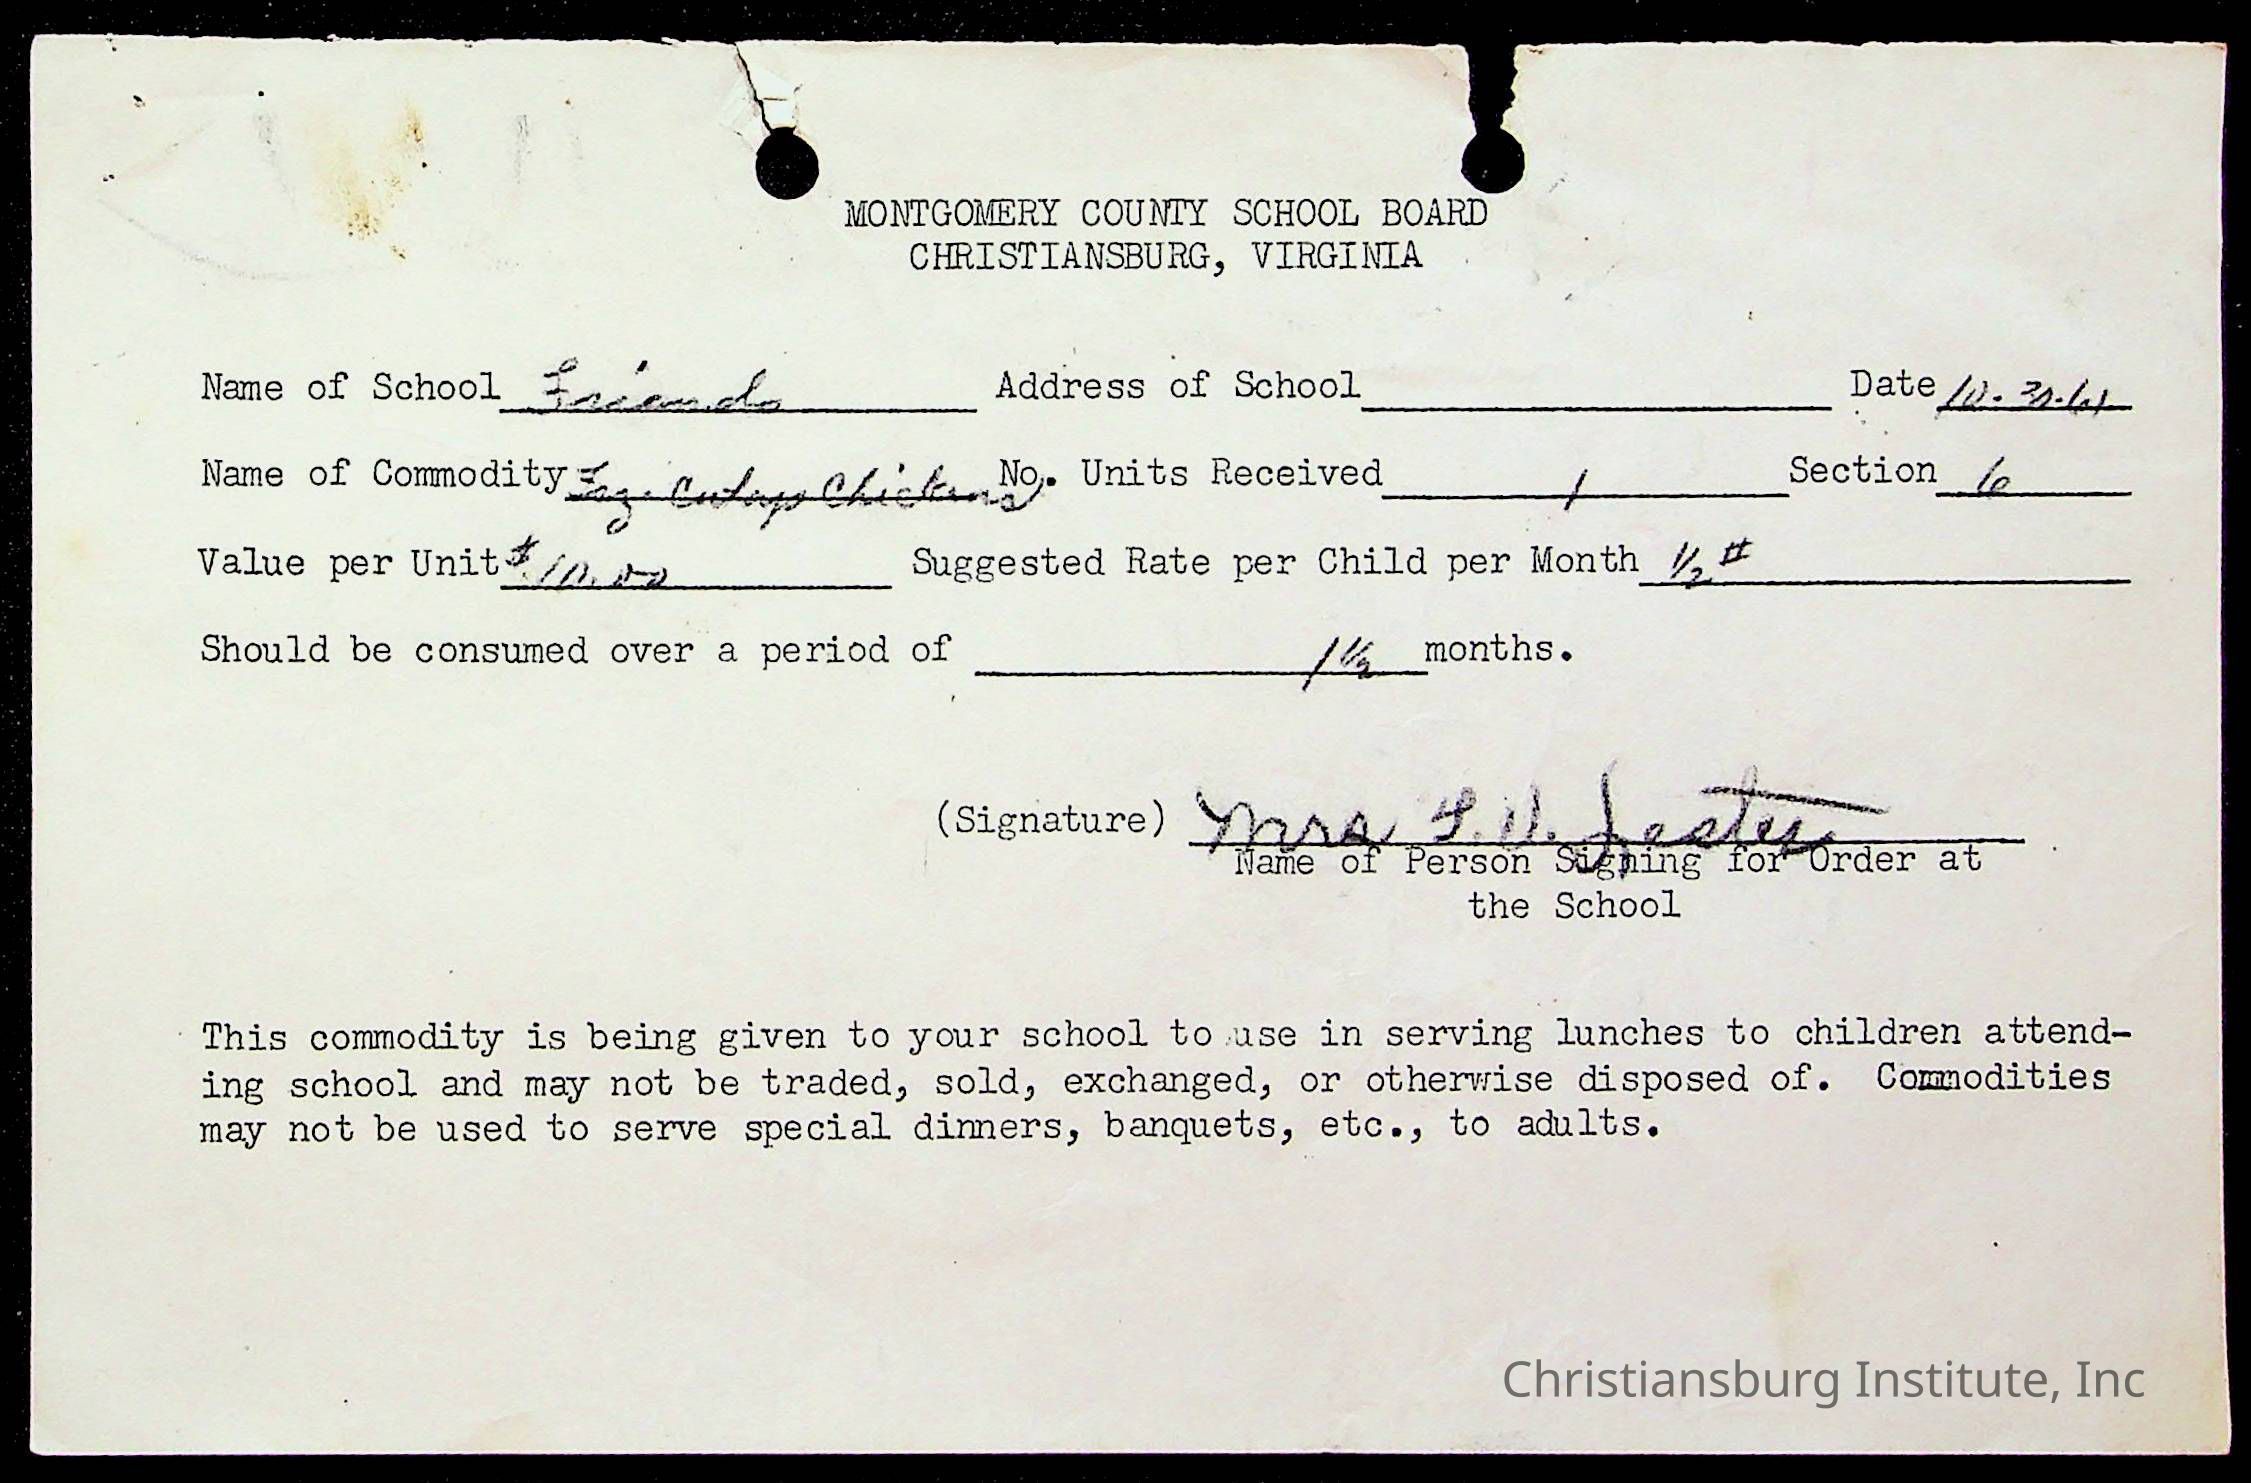 MONTGOMERY COUNTY SCHOOL BOARD
CHRISTIANSBURG, VIRGINIA
Name of School Friends Address of School Date 10.30.61
Name of Commodity Cutup Chickens No. Units Received 1 Section 6
Value per Unit $10.00 Suggested Rate per Child per Month 1/2 #
Should be consumed over a period of 1 1/2 months.
(Signature) Mrs
Name of Person Signing for Order at
the School
This commodity is being given to your school to use in serving lunches to children attend-
ing school and may not be traded, sold, exchanged, or otherwise disposed of. Commodities
may not be used to serve special dinners, banquets, etc., to adults.
Christiansburg Institute, Inc